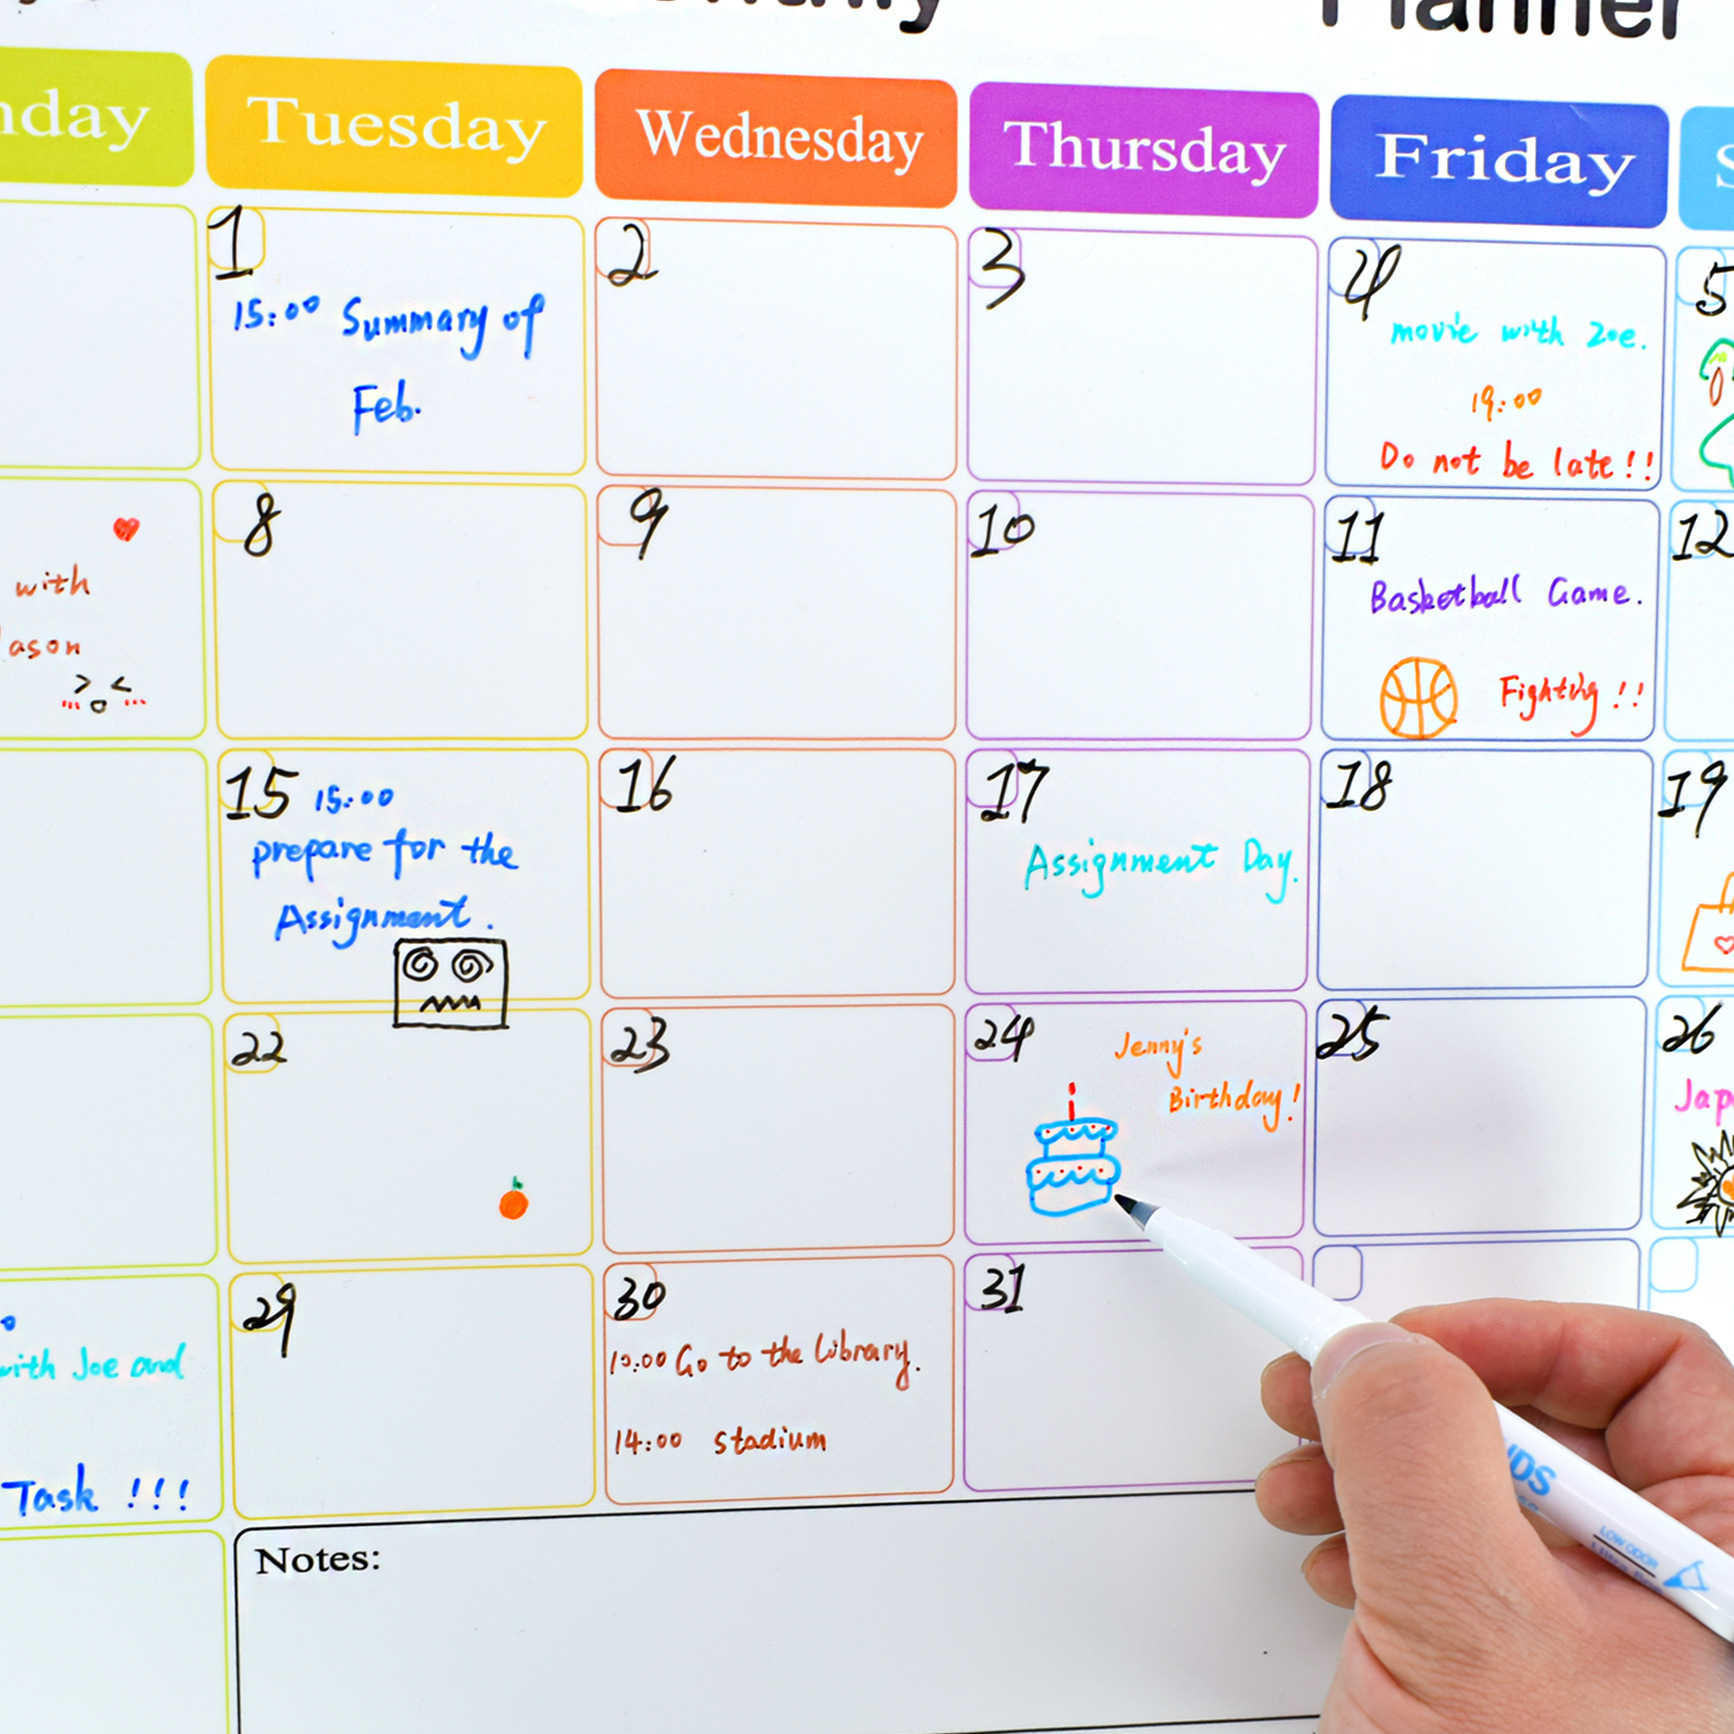 Planner
Tuesday
Wednesday
Thursday
Friday
1
15:00 Summary of
Feb.
2
3
4
movie with Zoe.
19:00
Do not be late!!
5
with
8
9
10
11
Basketball Game.
Fighting!!
12
15 15:00
prepare for the
Assignment.
16
17
Assignment Day.
18
19
22
23
24
Jenny's
Birthday!
25
26
with Joe and
Task !!!
29
30
10:00 Go to the library.
14:00 stadium
31
Notes:
LOW ODOR